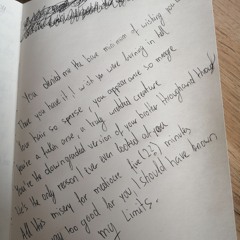 You stand me the bare minimum of wishing you
Then you have it! I wish you were burning in hell
Your hair so sparse, your appearance so meagre
you're a rotten one, a truly wretched creature
You're the downgraded version of your brother throughout though
he's the only reason I ever been looked at
All this misery for mediocre five (22) minutes
way too good for you, I should have known
my limits.